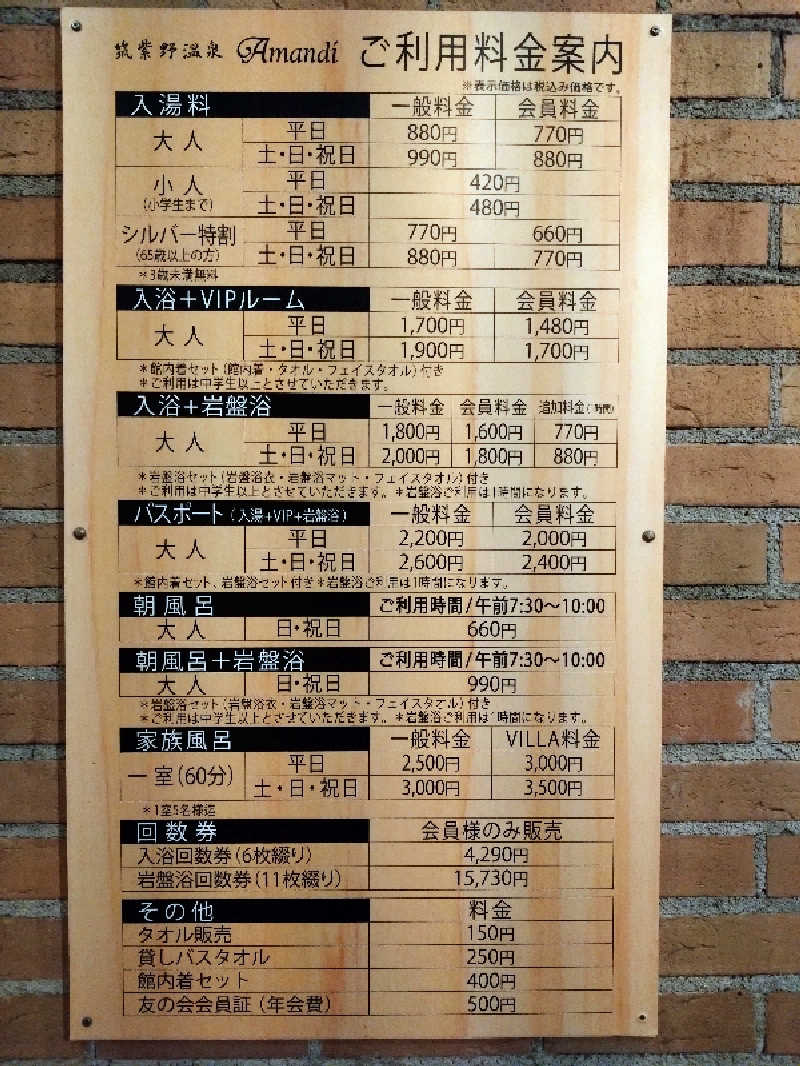 筑紫野温泉 Amandi ご利用料金案内
※表示価格は税込み価格です。
入湯料 一般料金 会員料金
大人 平日 880円 770円
土・日・祝日 990円 880円
小人 平日 420円
(小学生まで) 土・日・祝日 480円
シルバー特割 平日 770円 660円
(65歳以上の方) 土・日・祝日 880円 770円
*3歳未満無料
入浴+VIPルーム 一般料金 会員料金
大人 平日 1,700円 1,480円
土・日・祝日 1,900円 1,700円
*館内着セット(館内着・タオル・フェイスタオル)付き
*ご利用は中学生以上とさせていただきます。
入浴+岩盤浴 一般料金 会員料金 追加料金(1時間)
大人 平日 1,800円 1,600円 770円
土・日・祝日 2,000円 1,800円 880円
*岩盤浴セット(岩盤浴衣・岩盤浴マット・フェイスタオル)付き
*ご利用は中学生以上とさせていただきます。*岩盤浴ご利用は1時間になります。
パスポート(入湯+VIP+岩盤浴) 一般料金 会員料金
大人 平日 2,200円 2,000円
土・日・祝日 2,600円 2,400円
*館内着セット、岩盤浴セット付き*岩盤浴ご利用は1時間になります。
朝風呂 ご利用時間/午前7:30〜10:00
大人 日・祝日 660円
朝風呂+岩盤浴 ご利用時間/午前7:30〜10:00
大人 日・祝日 990円
*岩盤浴セット(岩盤浴衣・岩盤浴マット・フェイスタオル)付き
*ご利用は中学生以上とさせていただきます。*岩盤浴ご利用は1時間になります。
家族風呂 一般料金 VILLA料金
一室(60分) 平日 2,500円 3,000円
土・日・祝日 3,000円 3,500円
*1室5名様迄
回数券 会員様のみ販売
入浴回数券(6枚綴り) 4,290円
岩盤浴回数券(11枚綴り) 15,730円
その他 料金
タオル販売 150円
貸しバスタオル 250円
館内着セット 400円
友の会会員証(年会費) 500円